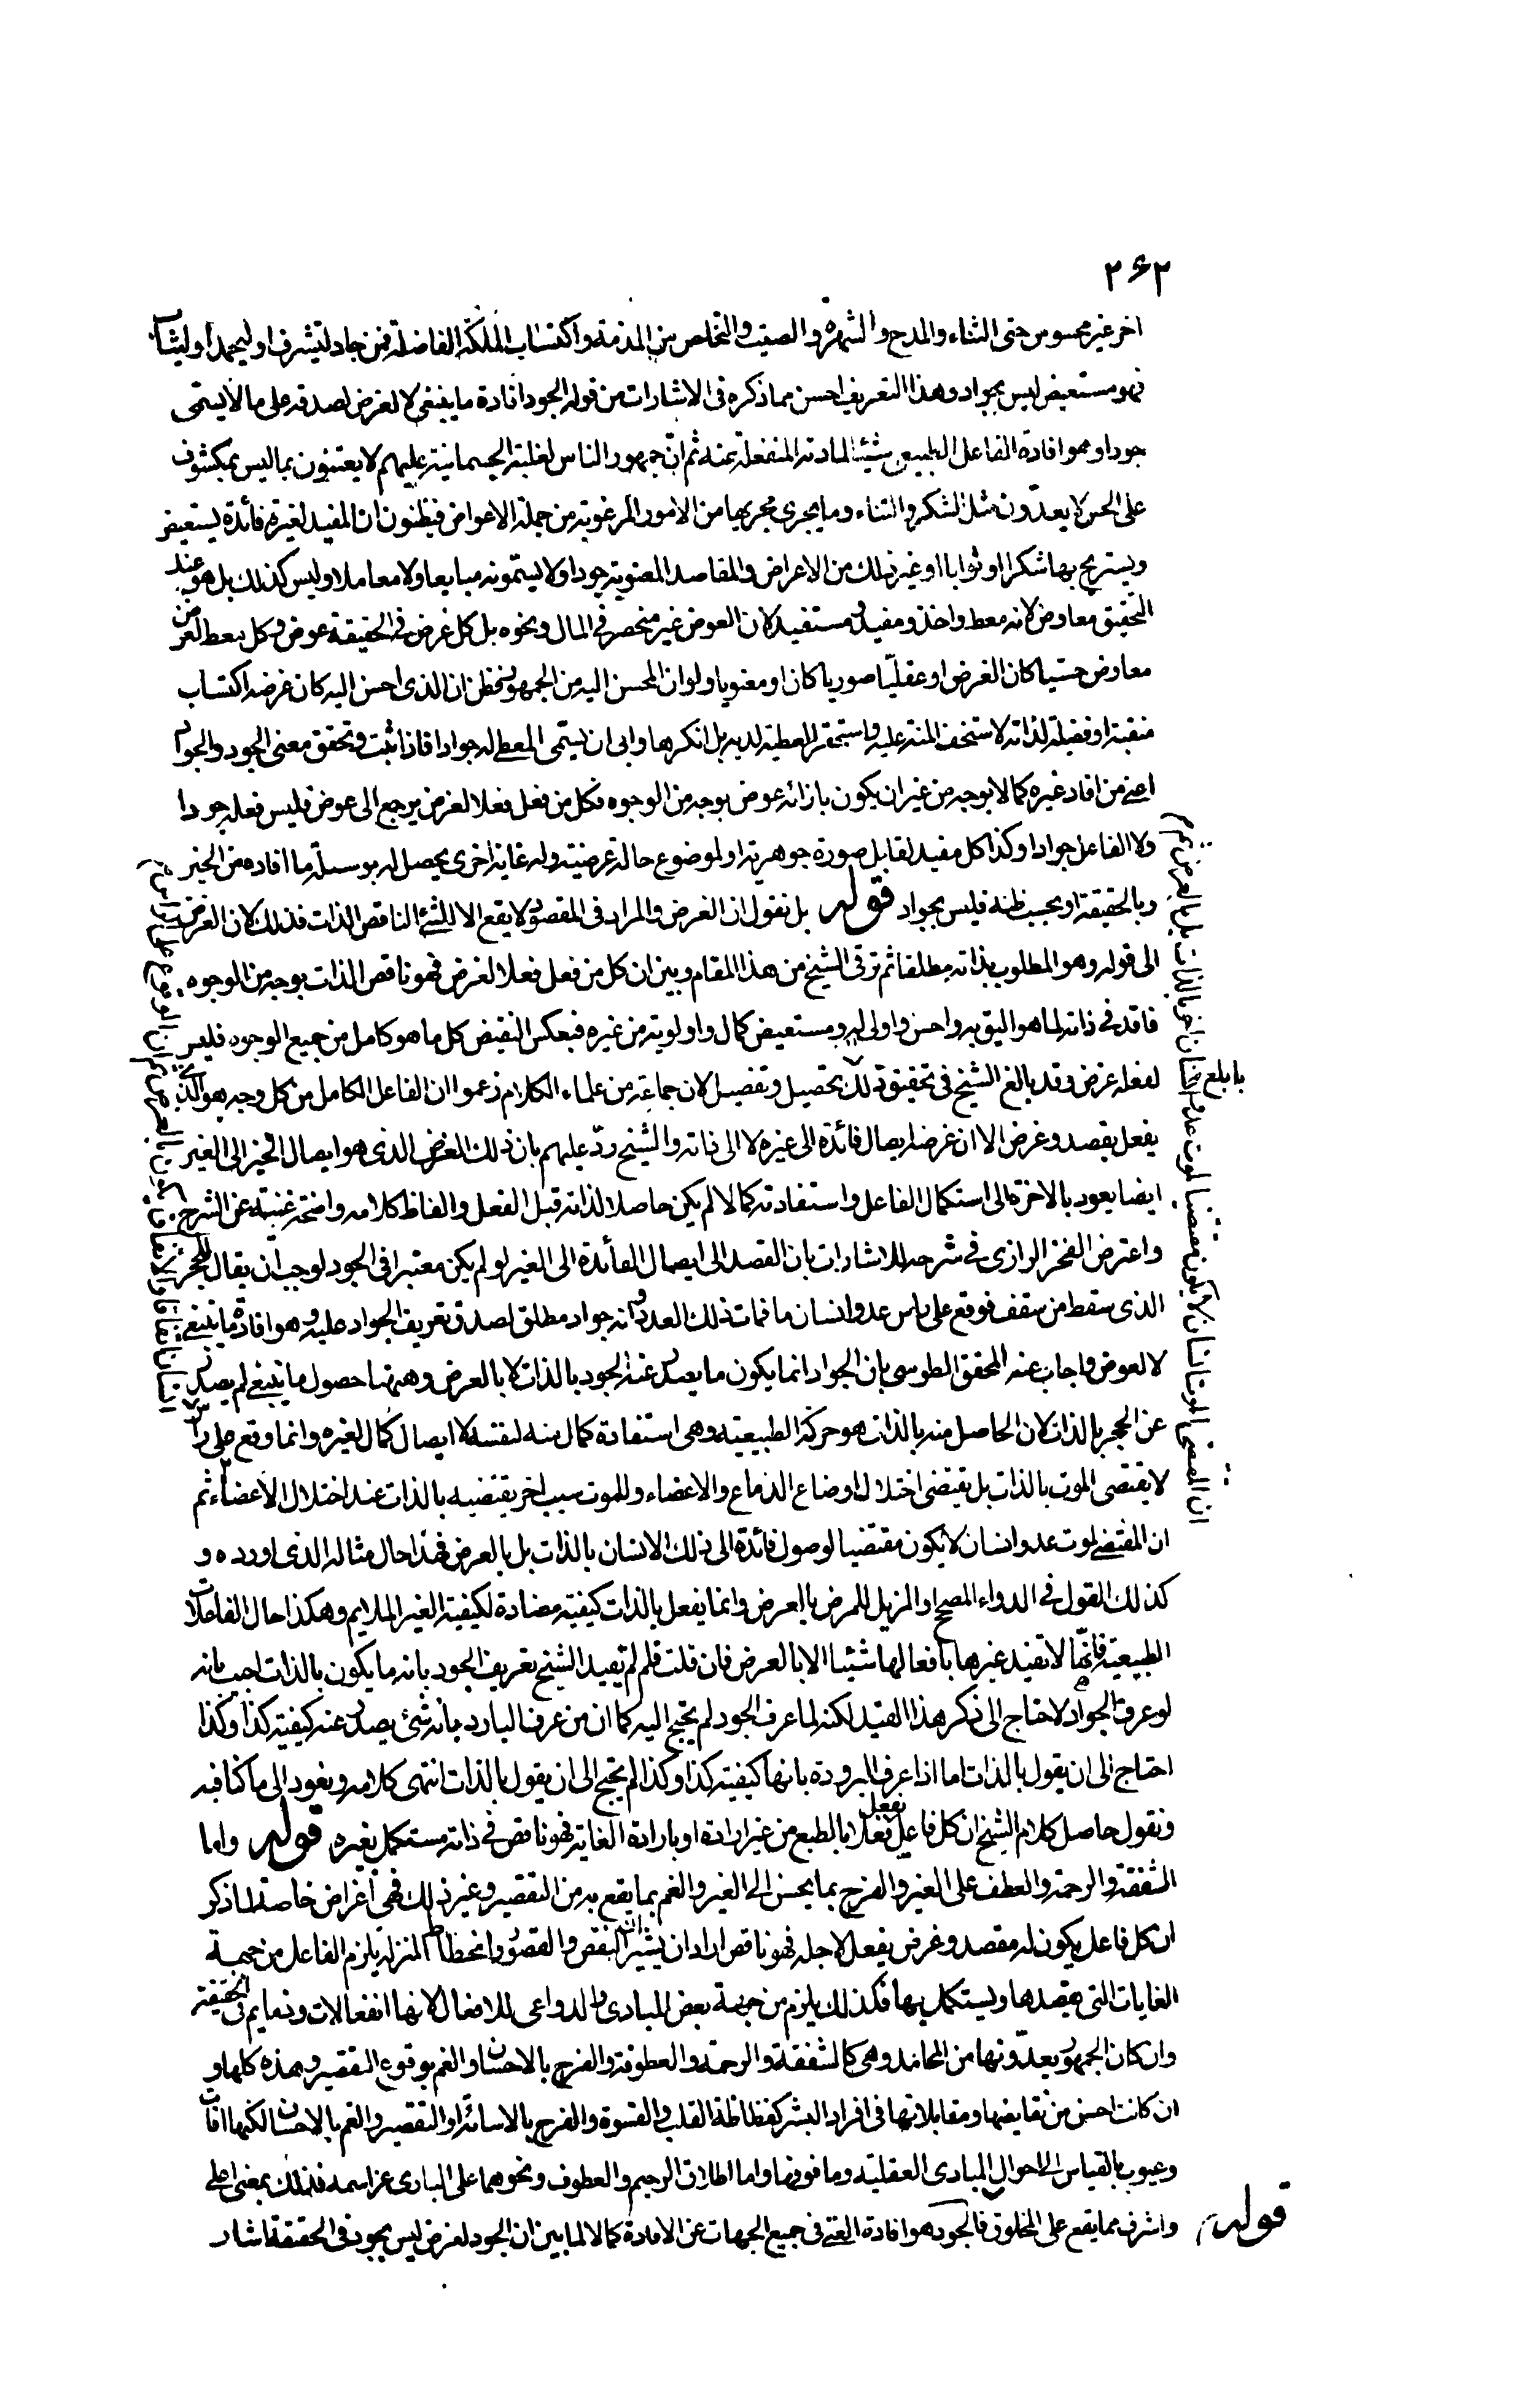 ۲۶۲
اخر غير محسوس حتى الثناء والمدح والشهرة والصيت والتخلص من المذمة واكتساب الملكة الفاضلة فمن جاد لتشرف او ليحمد او ليثاب
فهو مستعيض ليس بجواد وهذا التعريف احسن مما ذكره فى الاشارات من قوله الجود افادة ما ينبغى لا لغرض لصدقه على ما لا يسمى
جودا وهو افادة الفاعل الطبيعى شيئا لمادته المنفعلة عنه ثم ان جمهور الناس لغلبة الجسمانية عليهم لا يعتنون بما ليس بمكشوف
على الحس لا يعدون مثل الشكر والثناء وما يجرى مجريها من الامور المرغوبة من جملة الاعواض فيظنون ان المفيد لغيره فائدة يستعيض
ويستريح بها شكرا او ثوابا او غير ذلك من الاعراض والمقاصد المعنوية جودا ولا يسمونه مبايعا ولا معاملا وليس كذلك بل هو عند
التحقيق معاوض لانه معط واخذ ومفيد ومستفيد لان العوض غير منحصر فى المال ونحوه بل كل غرض فى الحقيقة عوض وكل معط لغرض
معاوض حسيا كان الغرض او عقليا صوريا كان او معنويا ولو ان المحسن اليه من الجمهور تحظن ان الذى احسن اليه كان غرضه اكتساب
منقبة او فضيلة لذاته لاستخف المنة عليه واستحقر العطية لديه بل انكرها وابى ان يسمى المعطى له جوادا فاذا ثبت وتحقق معنى الجود والجواد
اعنى من افاد غيره كمالا بوجه من غير ان يكون بازائه عوض بوجه من الوجوه فكل من فعل فعلا لغرض يرجع الى عوض فليس فعله جودا
ولا الفاعل جوادا وكذا كل مفيد لقابل صورة جوهرية او لموضوع حالة عرضية وله غاية اخرى يحصل له بوسيلة ما افاده من الخير
وبالحقيقة او بحسب ظنه فليس بجواد قوله بل نقول ان الغرض والمراد فى المقصود لا يقع الا للشئ الناقص الذات فذلك لان الغرض
الى قوله وهو المطلوب بذاته مطلقا ثم ترقى الشيخ من هذا المقام وبين ان كل من فعل فعلا لغرض فهو ناقص الذات بوجه من الوجوه
فاقد فى ذاته لما هو اليق به واحسن واولى له ومستعيض كمال واولوية من غيره فبعكس النقيض كل ما هو كامل من جميع الوجوه فليس
لفعله غرض وقد بالغ الشيخ فى تحقيق ذلك بتحصيل وتفصيل لان جماعة من علماء الكلام زعموا ان الفاعل الكامل من كل وجه هو الذى
يفعل بقصد وغرض الا ان غرضه ايصال فائدة الى غيره لا الى ذاته والشيخ رد عليهم بان ذلك الغرض الذى هو ايصال الخير الى الغير
ايضا يعود بالاخرة الى استكمال الفاعل واستفادته كمالا لم يكن حاصلا لذاته قبل الفعل والفاظ كلامه واضحة غنية عن الشرح
واعترض الفخر الرازى فى شرحه للاشارات بان القصد الى ايصال الفائدة الى الغير لو لم يكن معتبرا فى الجود لوجب ان يقال للحجر
الذى سقط من سقف فوقع على راس عدو انسان ما فمات ذلك العدو انه جواد مطلق لصدق تعريف الجواد عليه وهو افادة ما ينبغى
لا لعوض واجاب عنه المحقق الطوسى بان الجواد انما يكون ما يصدر عنه الجود بالذات لا بالعرض وههنا حصول ما ينبغى لم يصدر
عن الحجر بالذات لان الحاصل منه بالذات هو حركة الطبيعية وهى استفادة كمال منه لنفسه لا ايصال كمال لغيره وانما وقع على راس
لا يقتضى الموت بالذات بل يقتضى اختلال اوضاع الدماغ والاعضاء وللموت سبب اخر يقتضيه بالذات عند اختلال الاعضاء ثم
ان المقتضى لموت عدو انسان لا يكون مقتضيا لوصول فائدة الى ذلك الانسان بالذات بل بالعرض فهذا حال مثاله الذى اورده و
كذلك القول فى الدواء المصحح او المزيل للمرض بالعرض وانما يفعل بالذات كيفية مضادة لكيفية الغير الملايم وهكذا حال الفاعلات
الطبيعية فانها لا تفيد غيرها بافعالها شيئا الا بالعرض فان قلت فلم لم يقيد الشيخ تعريف الجود بانه ما يكون بالذات اجيب بانه
لو عرف الجواد لاحتاج الى ذكر هذا القيد لكنه لما عرف الجود لم يحتج اليه كما ان من عرف البارد بانه شئ يصدر عنه كيفية كذا وكذا
احتاج الى ان يقول بالذات اما اذا عرف البرودة بانها كيفية كذا وكذا لم يحتج الى ان يقول بالذات انتهى كلامه ونعود الى ما كنا فيه
ونقول حاصل كلام الشيخ ان كل فاعل يفعل اما بالطبع من غير ارادة او بارادة الغاية فهو ناقص فى ذاته مستكمل بغيره قوله واما
الشفقة والرحمة والعطف على الغير والفرح بما يحسن الى الغير والغم بما يقع به من التقصير وغير ذلك فهى أغراض خاصة لما ذكر
ان كل فاعل يكون له مقصد وغرض يفعل لاجله فهو ناقص اراد ان يشير الى ان النقص والقصور وانحطاط المنزلة يلزم الفاعل من جهة
الغايات التى يقصدها ويستكمل بها فكذلك يلزم من جهة بعض المبادى والدواعى للافعال لانها انفعالات وذمايم فى الحقيقة
وان كان الجمهور يعدونها من المحامد وهى كالشفقة والرحمة والعطوفة والفرح بالاحسان او الغم بوقوع التقصير وهذه كلها و
ان كانت احسن من نقايضها ومقابلاتها فى افراد البشر كفظاظة القلب والقسوة والفرح بالاسائة او التقصير والغم بالاحسان لكنها افات
وعيوب بالقياس الى احوال المبادى العقلية وما فوقها واما اطلاق الرحيم والعطوف ونحوهما على البارى عز اسمه فذلك بمعنى اعلى
واشرف مما يقع على المخلوق فالجود هو افادة الغنى فى جميع الجهات عن الافادة كمالا لما بين ان الجود لغرض ليس بجود فى الحقيقة اشار
قوله